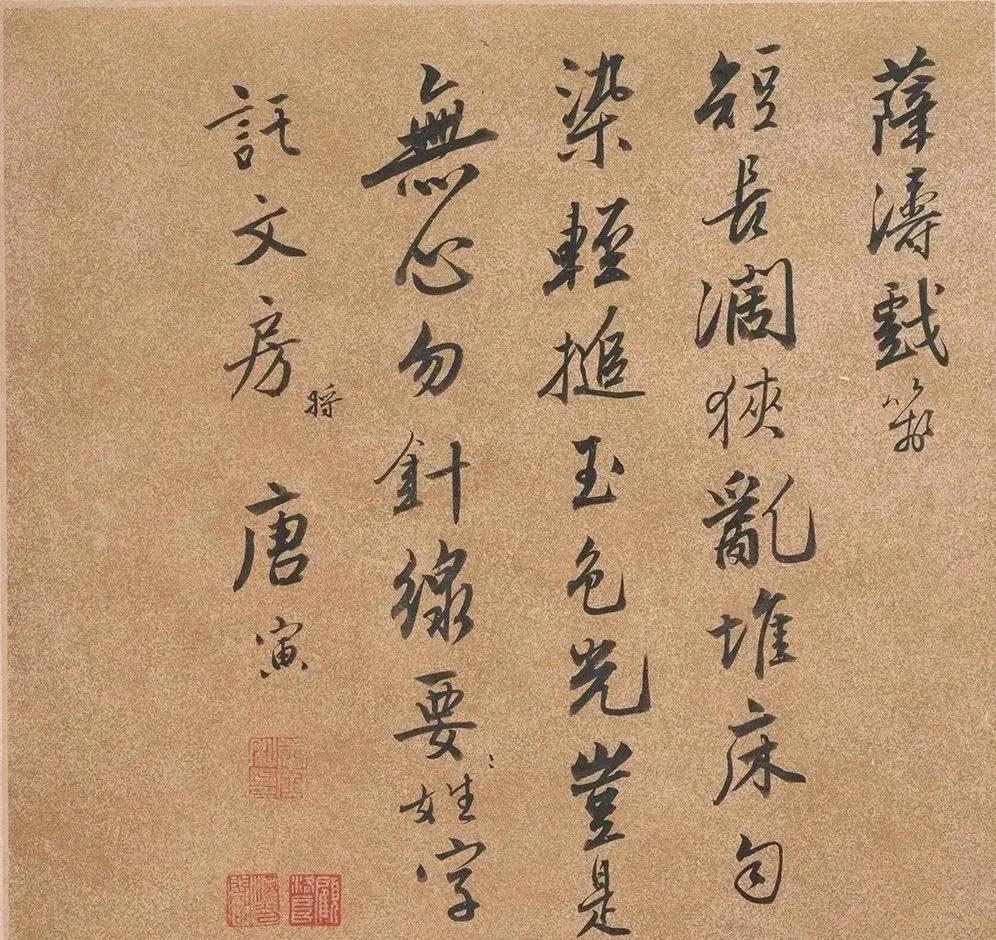 薛濤戲箋
短長闊狹亂堆床勻
染輕搥玉色光豈是
無心勿針線要姓字
託文房 將 唐寅